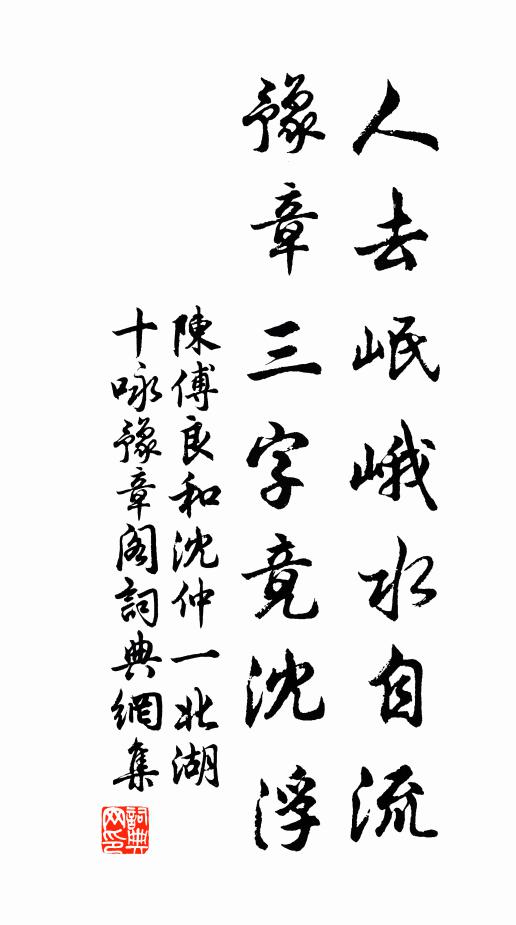 人去岷峨水自流
豫章三字竟沈浮
陳傅良和沈仲一北湖
十咏豫章閣詞典網集
詞典
网印